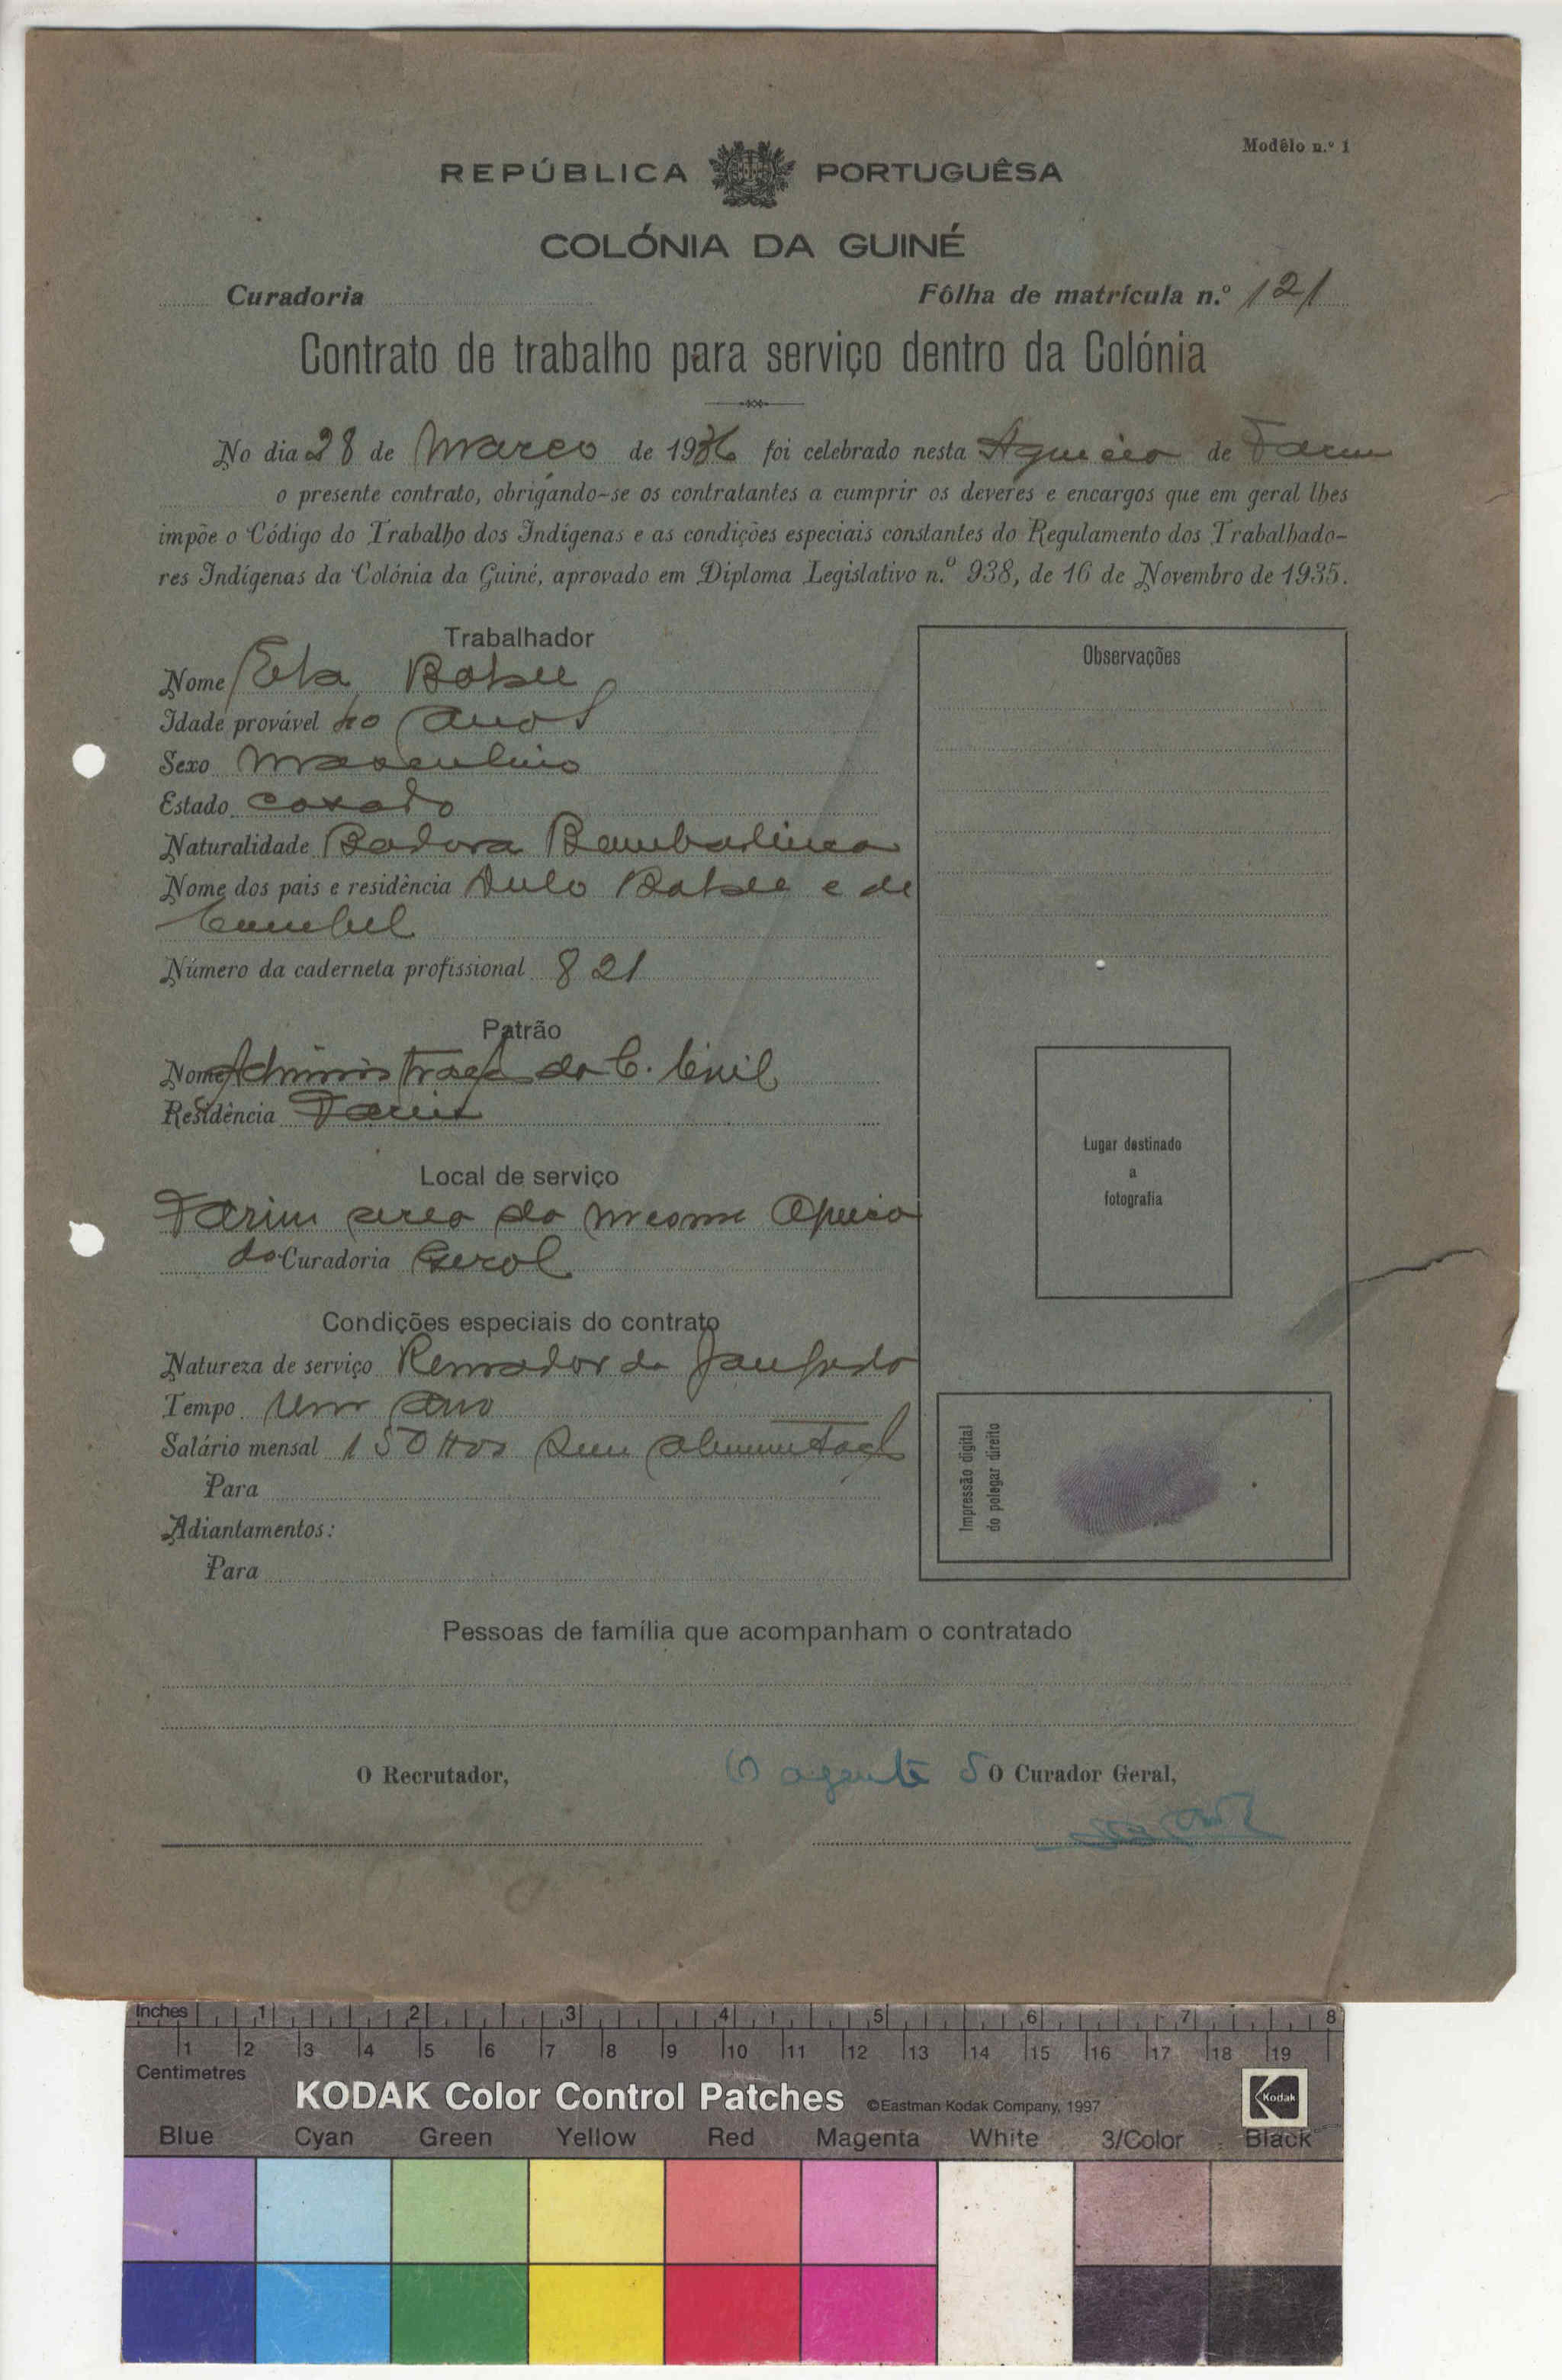 Modêlo n.º 1
REPÚBLICA PORTUGUÊSA
COLÓNIA DA GUINÉ
Curadoria Fôlha de matrícula n.º 121
Contrato de trabalho para serviço dentro da Colónia
No dia 28 de Março de 1936 foi celebrado nesta de Farim
o presente contrato, obrigando-se os contratantes a cumprir os deveres e encargos que em geral lhes
impõe o Código do Trabalho dos Indígenas e as condições especiais constantes do Regulamento dos Trabalhado-
res Indígenas da Colónia da Guiné, aprovado em Diploma Legislativo n.º 938, de 16 de Novembro de 1935.
Trabalhador
Nome
Idade provável anos
Sexo Masculino
Estado casado
Naturalidade Badora Bambadinca
Nome dos pais e residência e de
Número da caderneta profissional 821
Patrão
Nome Administração do C. Civil
Residência Farim
Local de serviço
Farim
da Curadoria Geral
Condições especiais do contrato
Natureza de serviço Remador da
Tempo Um ano
Salário mensal 150 sem alimentação
Para
Adiantamentos:
Para
Observações
Lugar destinado
a
fotografia
Impressão digital
do polegar direito
Pessoas de família que acompanham o contratado
O Recrutador, O agente O Curador Geral,
Inches 1 2 3 4 5 6 7 8
1 2 3 4 5 6 7 8 9 10 11 12 13 14 15 16 17 18 19
Centimetres
KODAK Color Control Patches ©Eastman Kodak Company, 1997 Kodak
Blue Cyan Green Yellow Red Magenta White 3/Color Black